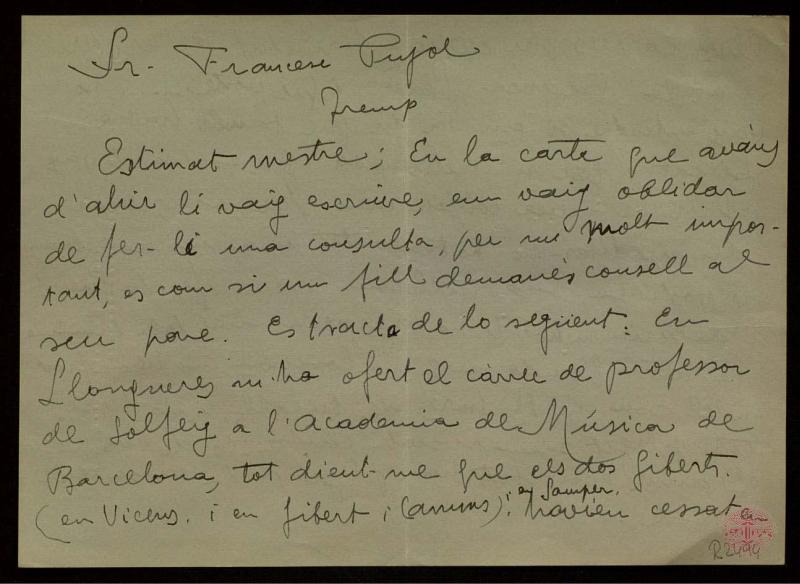 Sr. Francesc Pujol
Tremp
Estimat mestre; En la carta que avans
d'ahir li vaig escriure, em vaig oblidar
de fer-li una consulta, per mi molt impor-
tant, es com si un fill demanés consell al
seu pare. Es tracta de lo següent: En
Llongueres m'ha ofert el càrrec de professor
de Solfeig a l'Academia de Música de
Barcelona, tot dient-me que els dos Giberts.
(en Vicens. i en Gibert i Camins) i en Samper. havien cessat en
R.2494